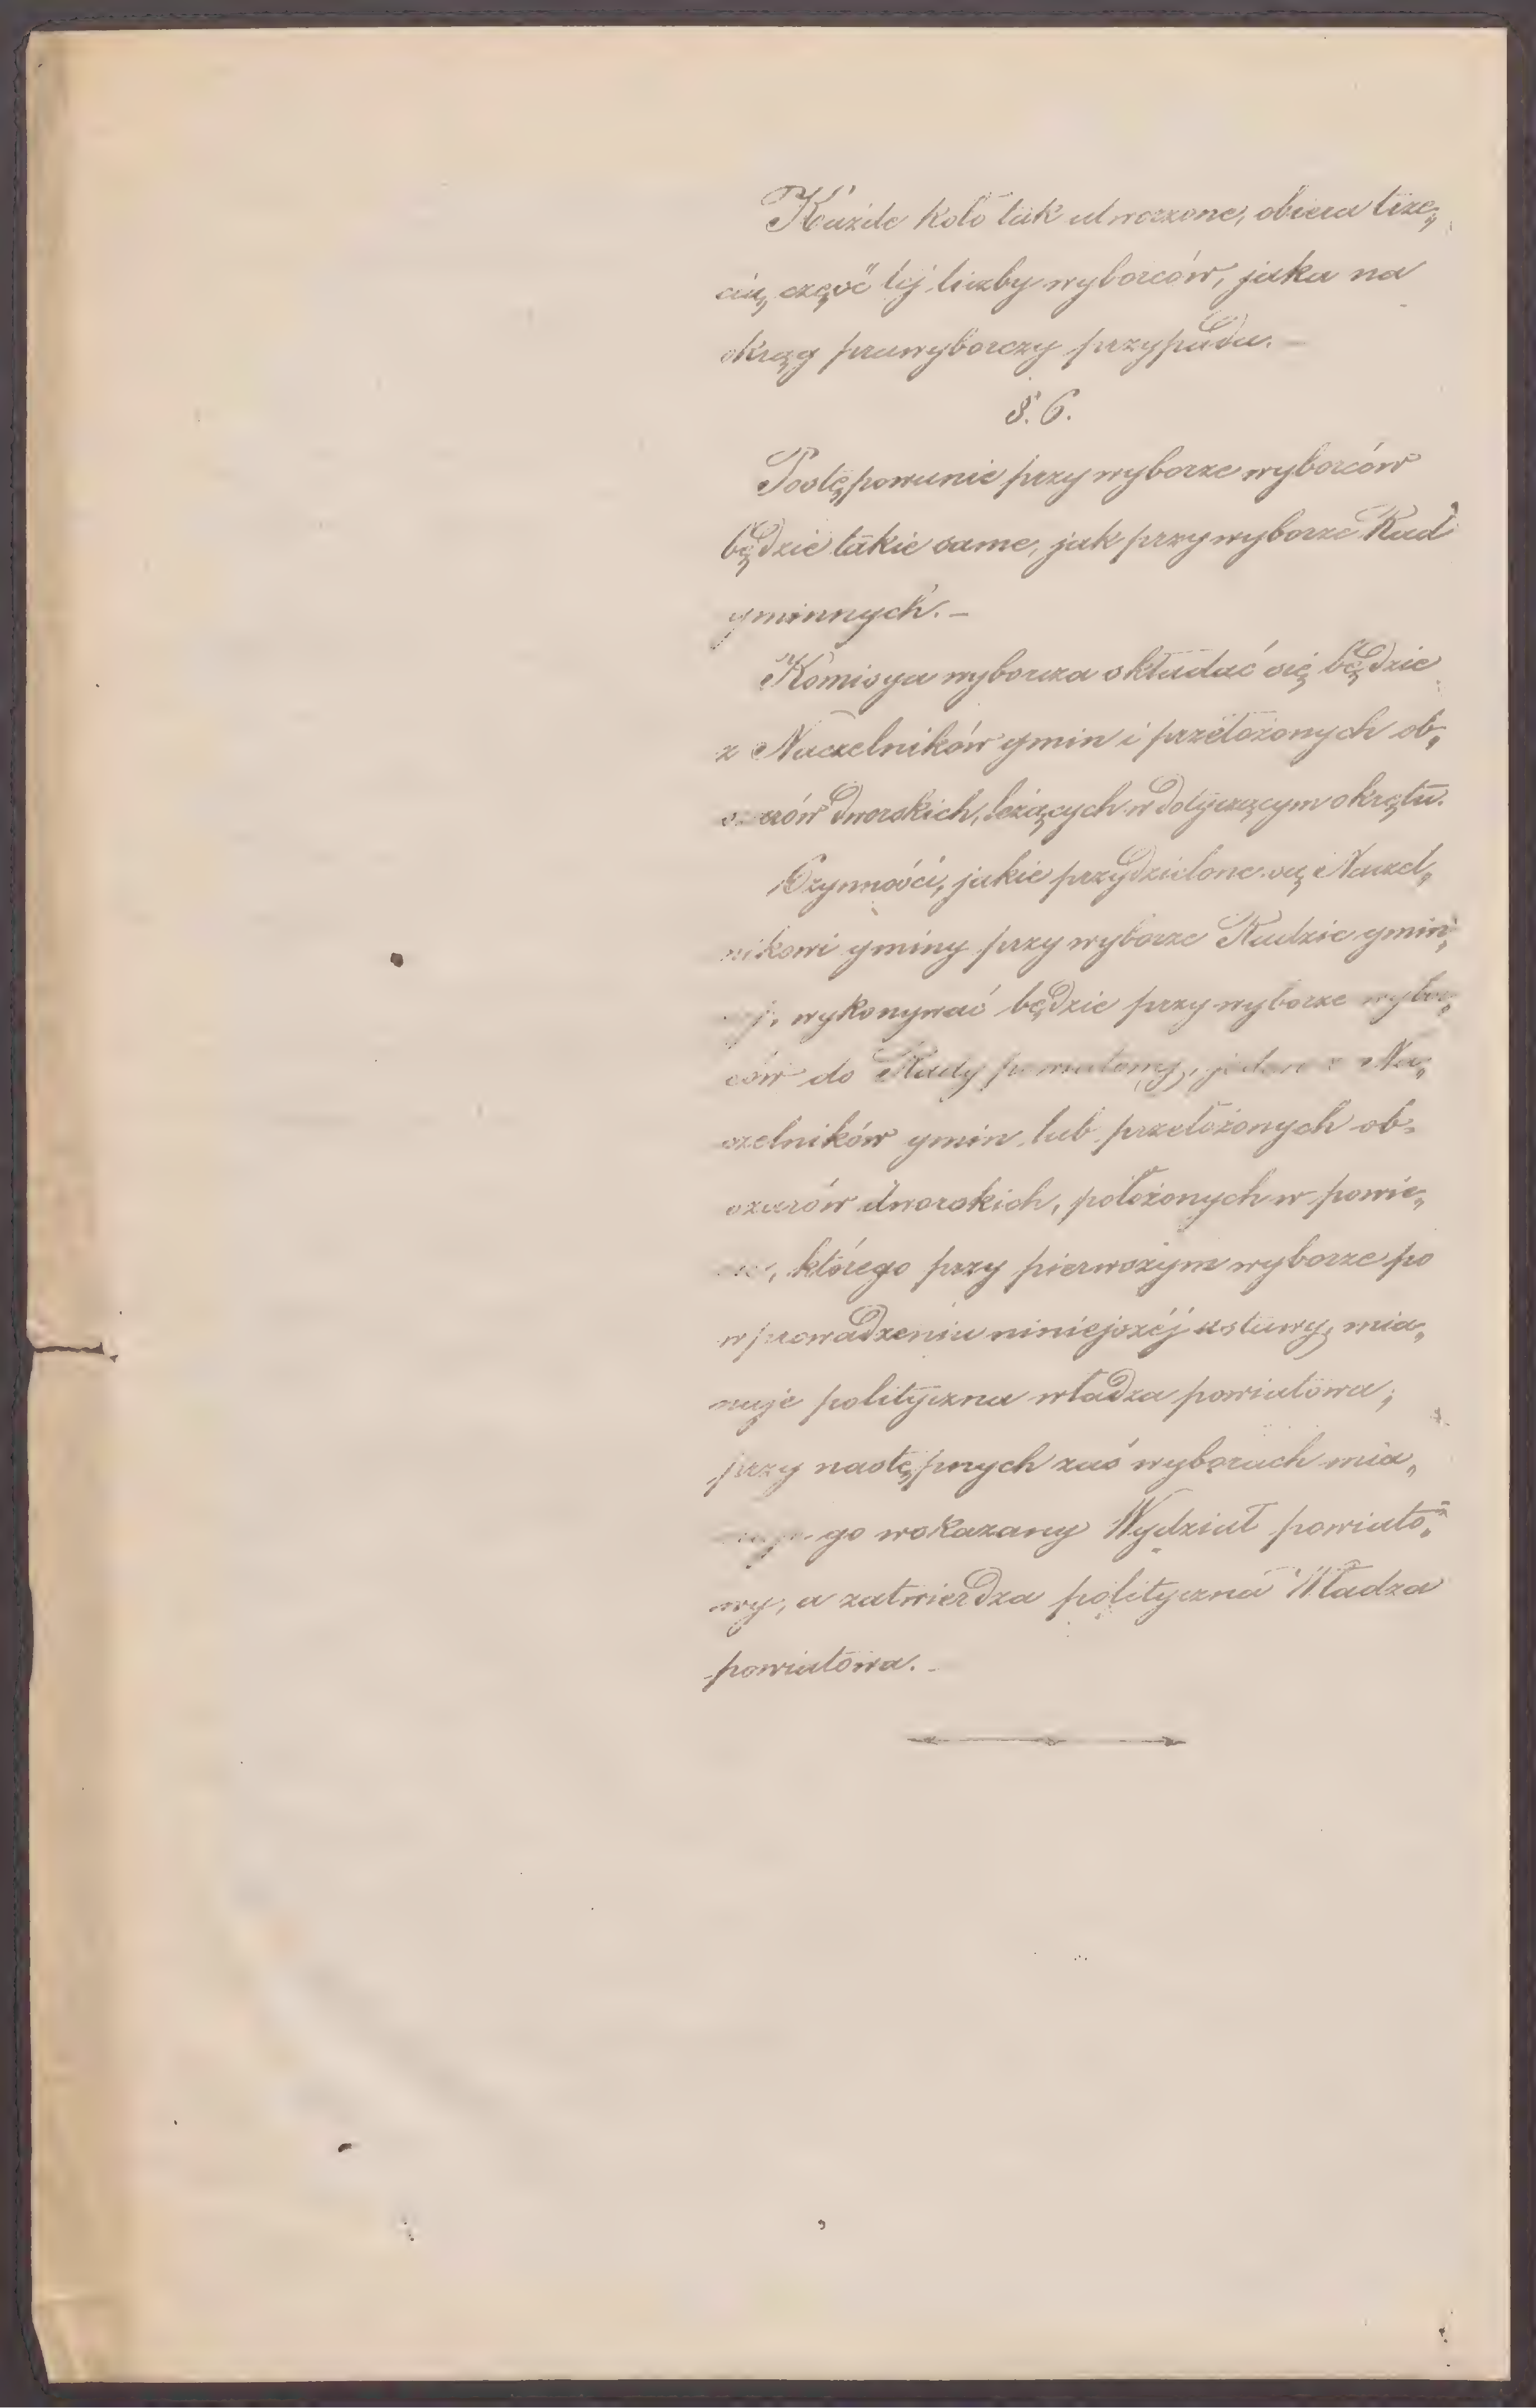 Każde koło tak utworzone, obiera trze„
cią część tej liczby wyborców, jaka na
okrąg prawyborczy przypada. –
§. 6.
Postępowanie przy wyborze wyborców
będzie takie same, jak przy wyborze Rad
gminnych. –
Komisya wyborcza składać się będzie
z Naczelników gmin i przełożonych ob„
szarów dworskich, leżących w dotyczącym okręgu.
Czynności, jakie przydzielone są Naczel„
nikowi gminy przy wyborze Radzie gmin„
wykonywać będzie przy wyborze wybor„
ców do Rady powiatowej, jeden z Na„
czelników gmin lub przełożonych ob„
szarów dworskich, położonych w powie„
którego przy pierwszym wyborze po
wprowadzeniu niniejszéj ustawy, mia„
nuje polityczna władza powiatowa;
przy następnych zaś wyborach mia„
go wskazany Wydział powiato„
wy, a zatwierdza polityczna Władza
powiatowa. –